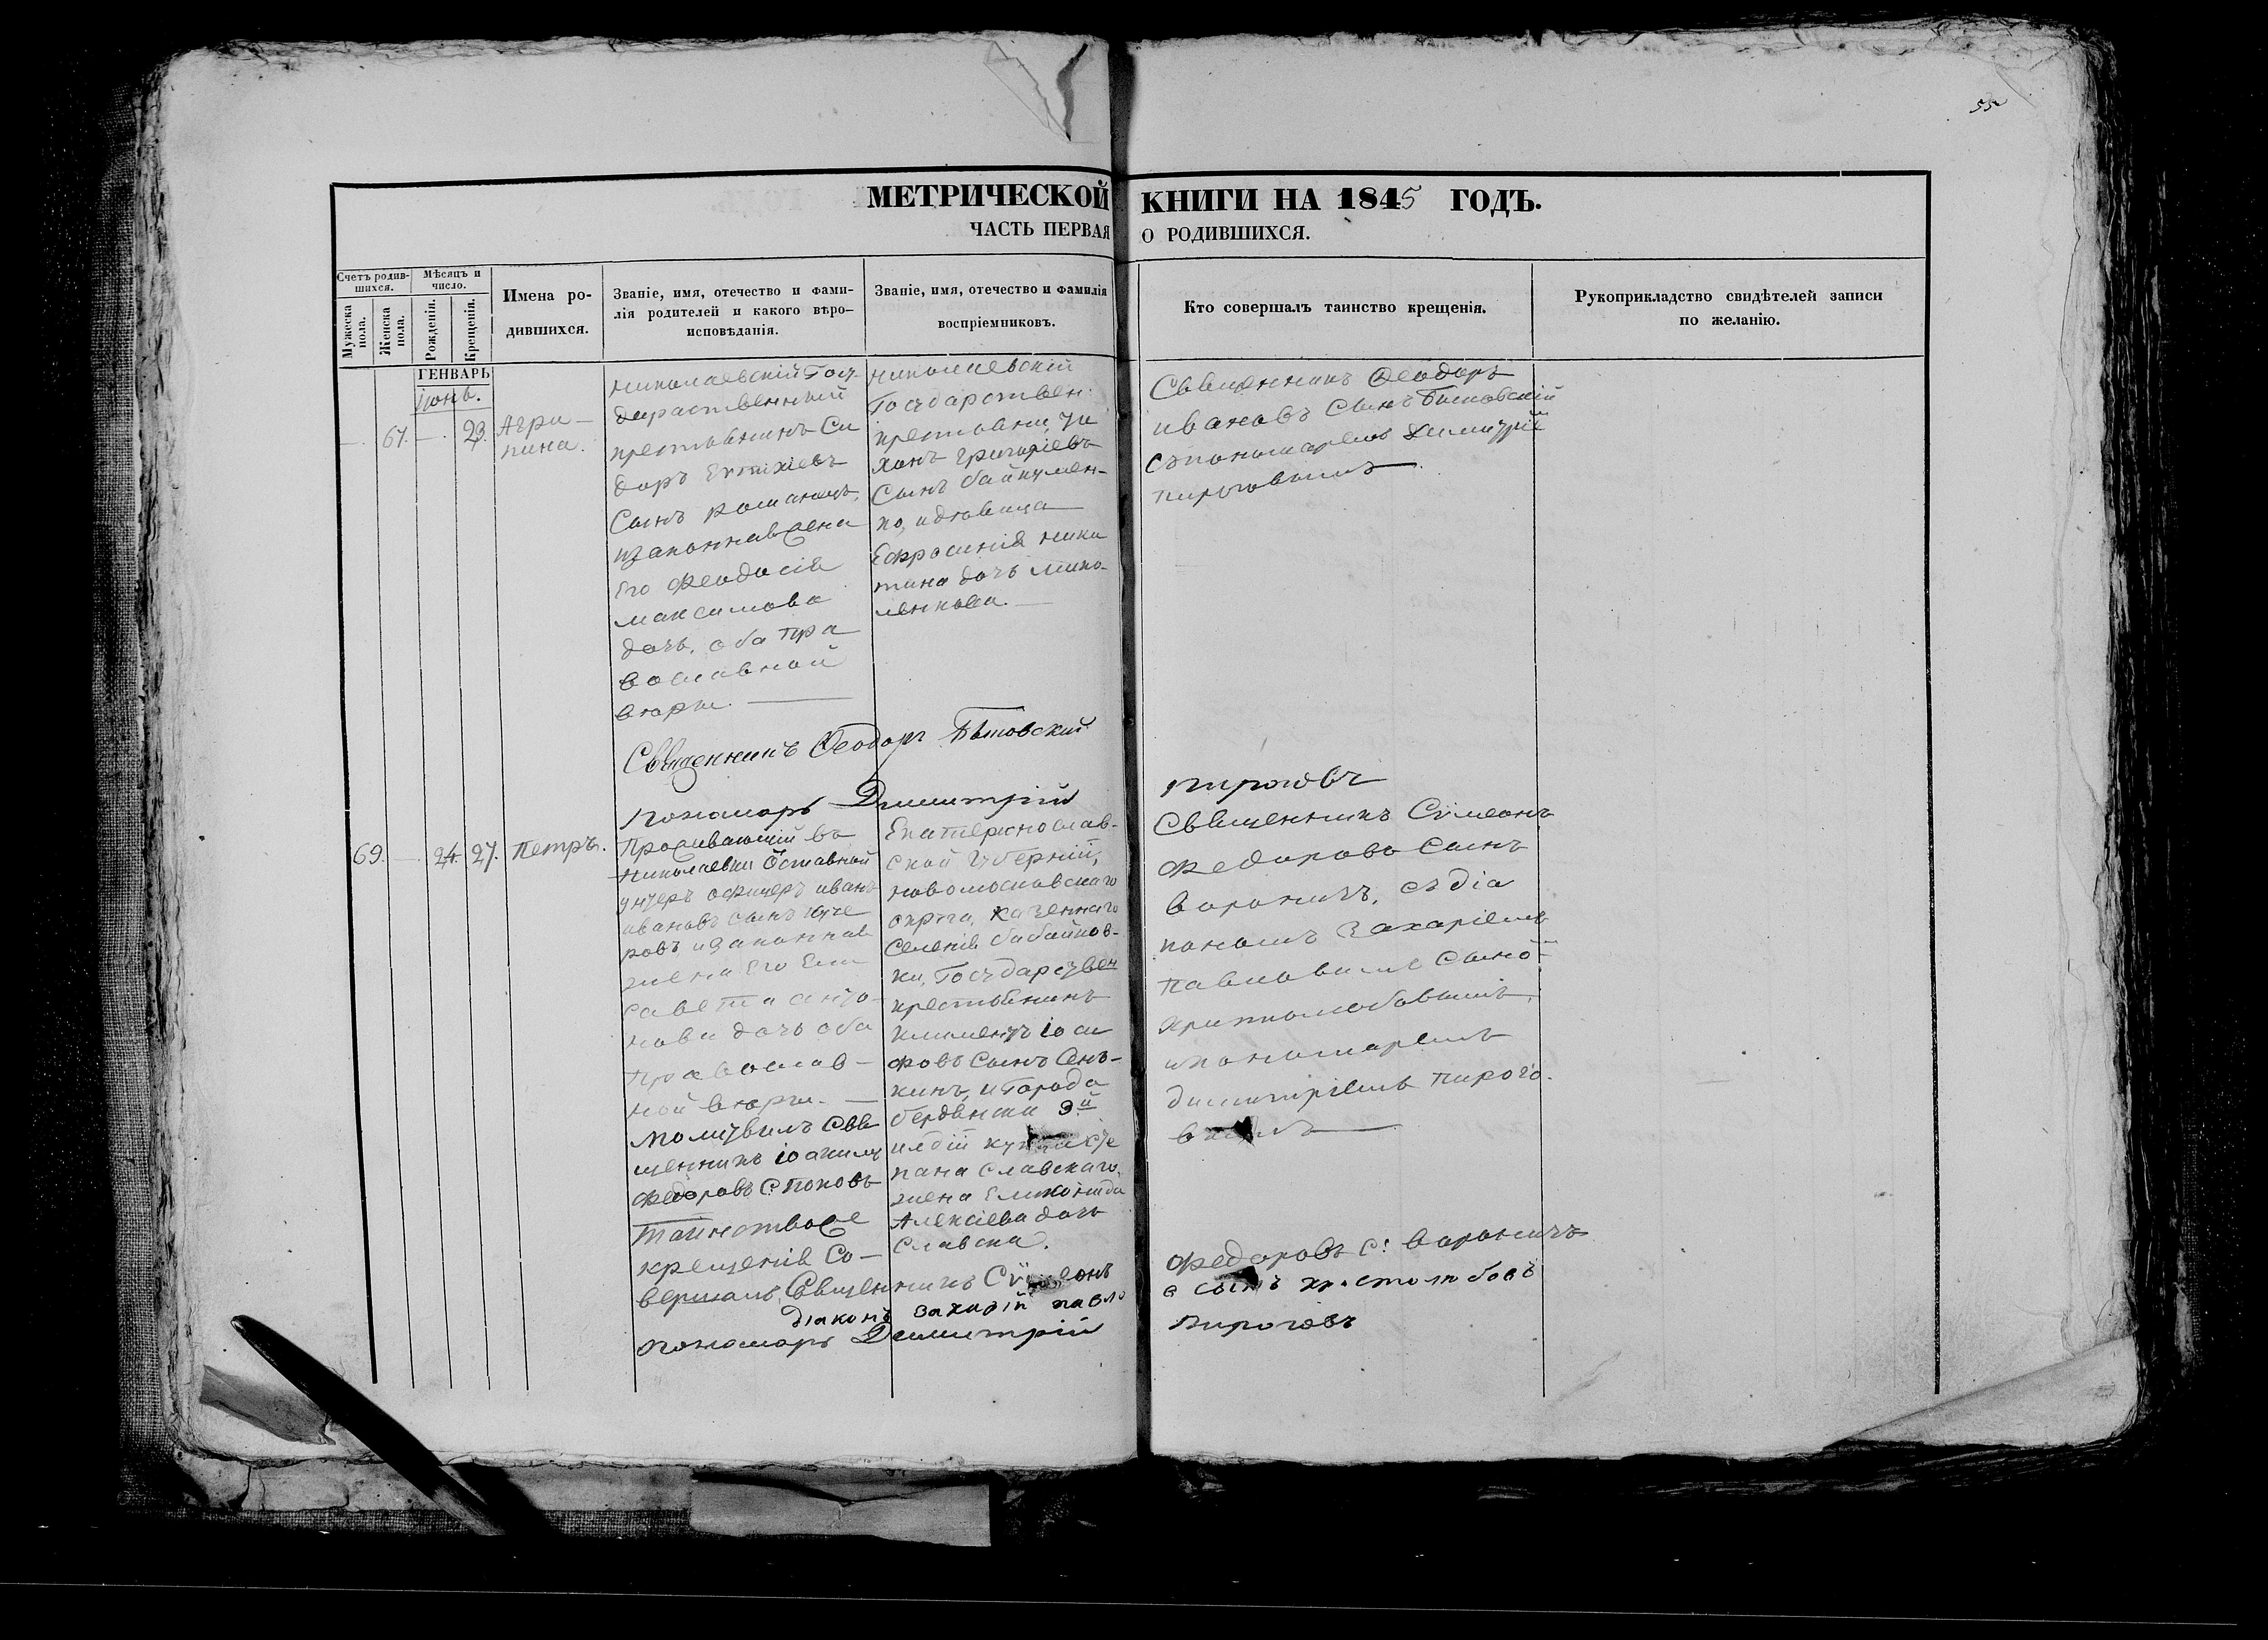 55
МЕТРИЧЕСКОЙ КНИГИ НА 1845 ГОДЪ.
ЧАСТЬ ПЕРВАЯ О РОДИВШИХСЯ.
Счетъ родив-
шихся.
Мужеска пола.
Женска пола.
Мѣсяцъ и
число.
Рожденія.
Крещенія.
Имена ро-
дившихся.
Званіе, имя, отечество и фами-
лія родителей и какого вѣро-
исповѣданія.
Званіе, имя, отечество и фамилія
воспріемниковъ.
Кто совершалъ таинство крещенія.
Рукоприкладство свидѣтелей записи
по желанію.
ГЕНВАРЬ
Іюнь.
67. 23.
Агри-
пина.
Николаевскій Госу-
дарственный
крестьянинъ Си
доръ Евтихіевъ
Сынъ
изаконная жена
Его Феодосія
Максимова
дочь, оба пра
вославной
вѣры.
Николаевскій
Государствен.
крестьяни, Ти
хонъ Григоріевъ
Сынъ
ко, идѣвица
Ефросинія Ники
тина дочь
Священникъ Феодоръ
Ивановъ Сынъ
съпономаремъ Димитріе
Пироговымъ
Священникъ Феодоръ
Пономарь Димитрій Пироговъ
69. 24. 27. Петръ.
Проживающій въ
Николаевки Отставной
унтеръ офицеръ Иванъ
Ивановъ сынъ Куче
ровъ изаконная
жена Его Ели
савета Анто-
нова дочь оба
Православ-
ной вѣры.
Молитвилъ Свя
щенникъ Іоакимъ
Федоровъ С: Поповъ
Таинство же
крещенія Со-
вершалъ,
Екатеринослав-
ской Губерніи,
Новомосковскаго
округа, Казеннаго
Селенія Бабайков-
ки, Государствен
крестьянинъ
Климентъ Іоси
фовъ Сынъ Сень-
кинъ, и Города
Бердянска 3й
купца Сте
пана Славскаго,
жена
Алексіева дочь
Славска.
Священникъ Сѵмеонъ
Федорова Сынъ
Вороничъ, съ діа
кономъ Захаріемъ
Павловымъ Сыно
Христолюбовымъ,
ипономаремъ
Димитріемъ Пирого-
вымъ
Священникъ Сѵмеонъ Федоровъ С: Вороничъ
Діаконъ Захарій Павло в сынъ христолюбовъ
Пономарь Димитрій Пироговъ